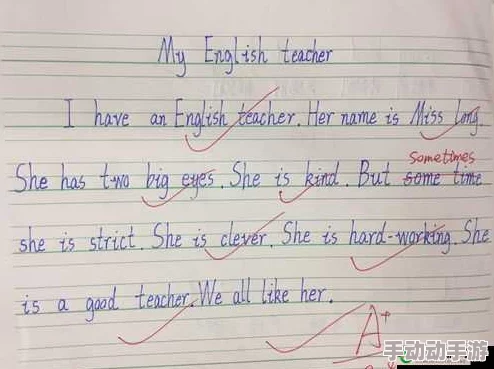 My English teacher
I have an English teacher. Her name is Miss long.
Sometimes
She has two big eyes. She is kind. But some time
she is strict. She is clever. She is hard-working. She
is a good teacher. We all like her.
A+
手动动手游